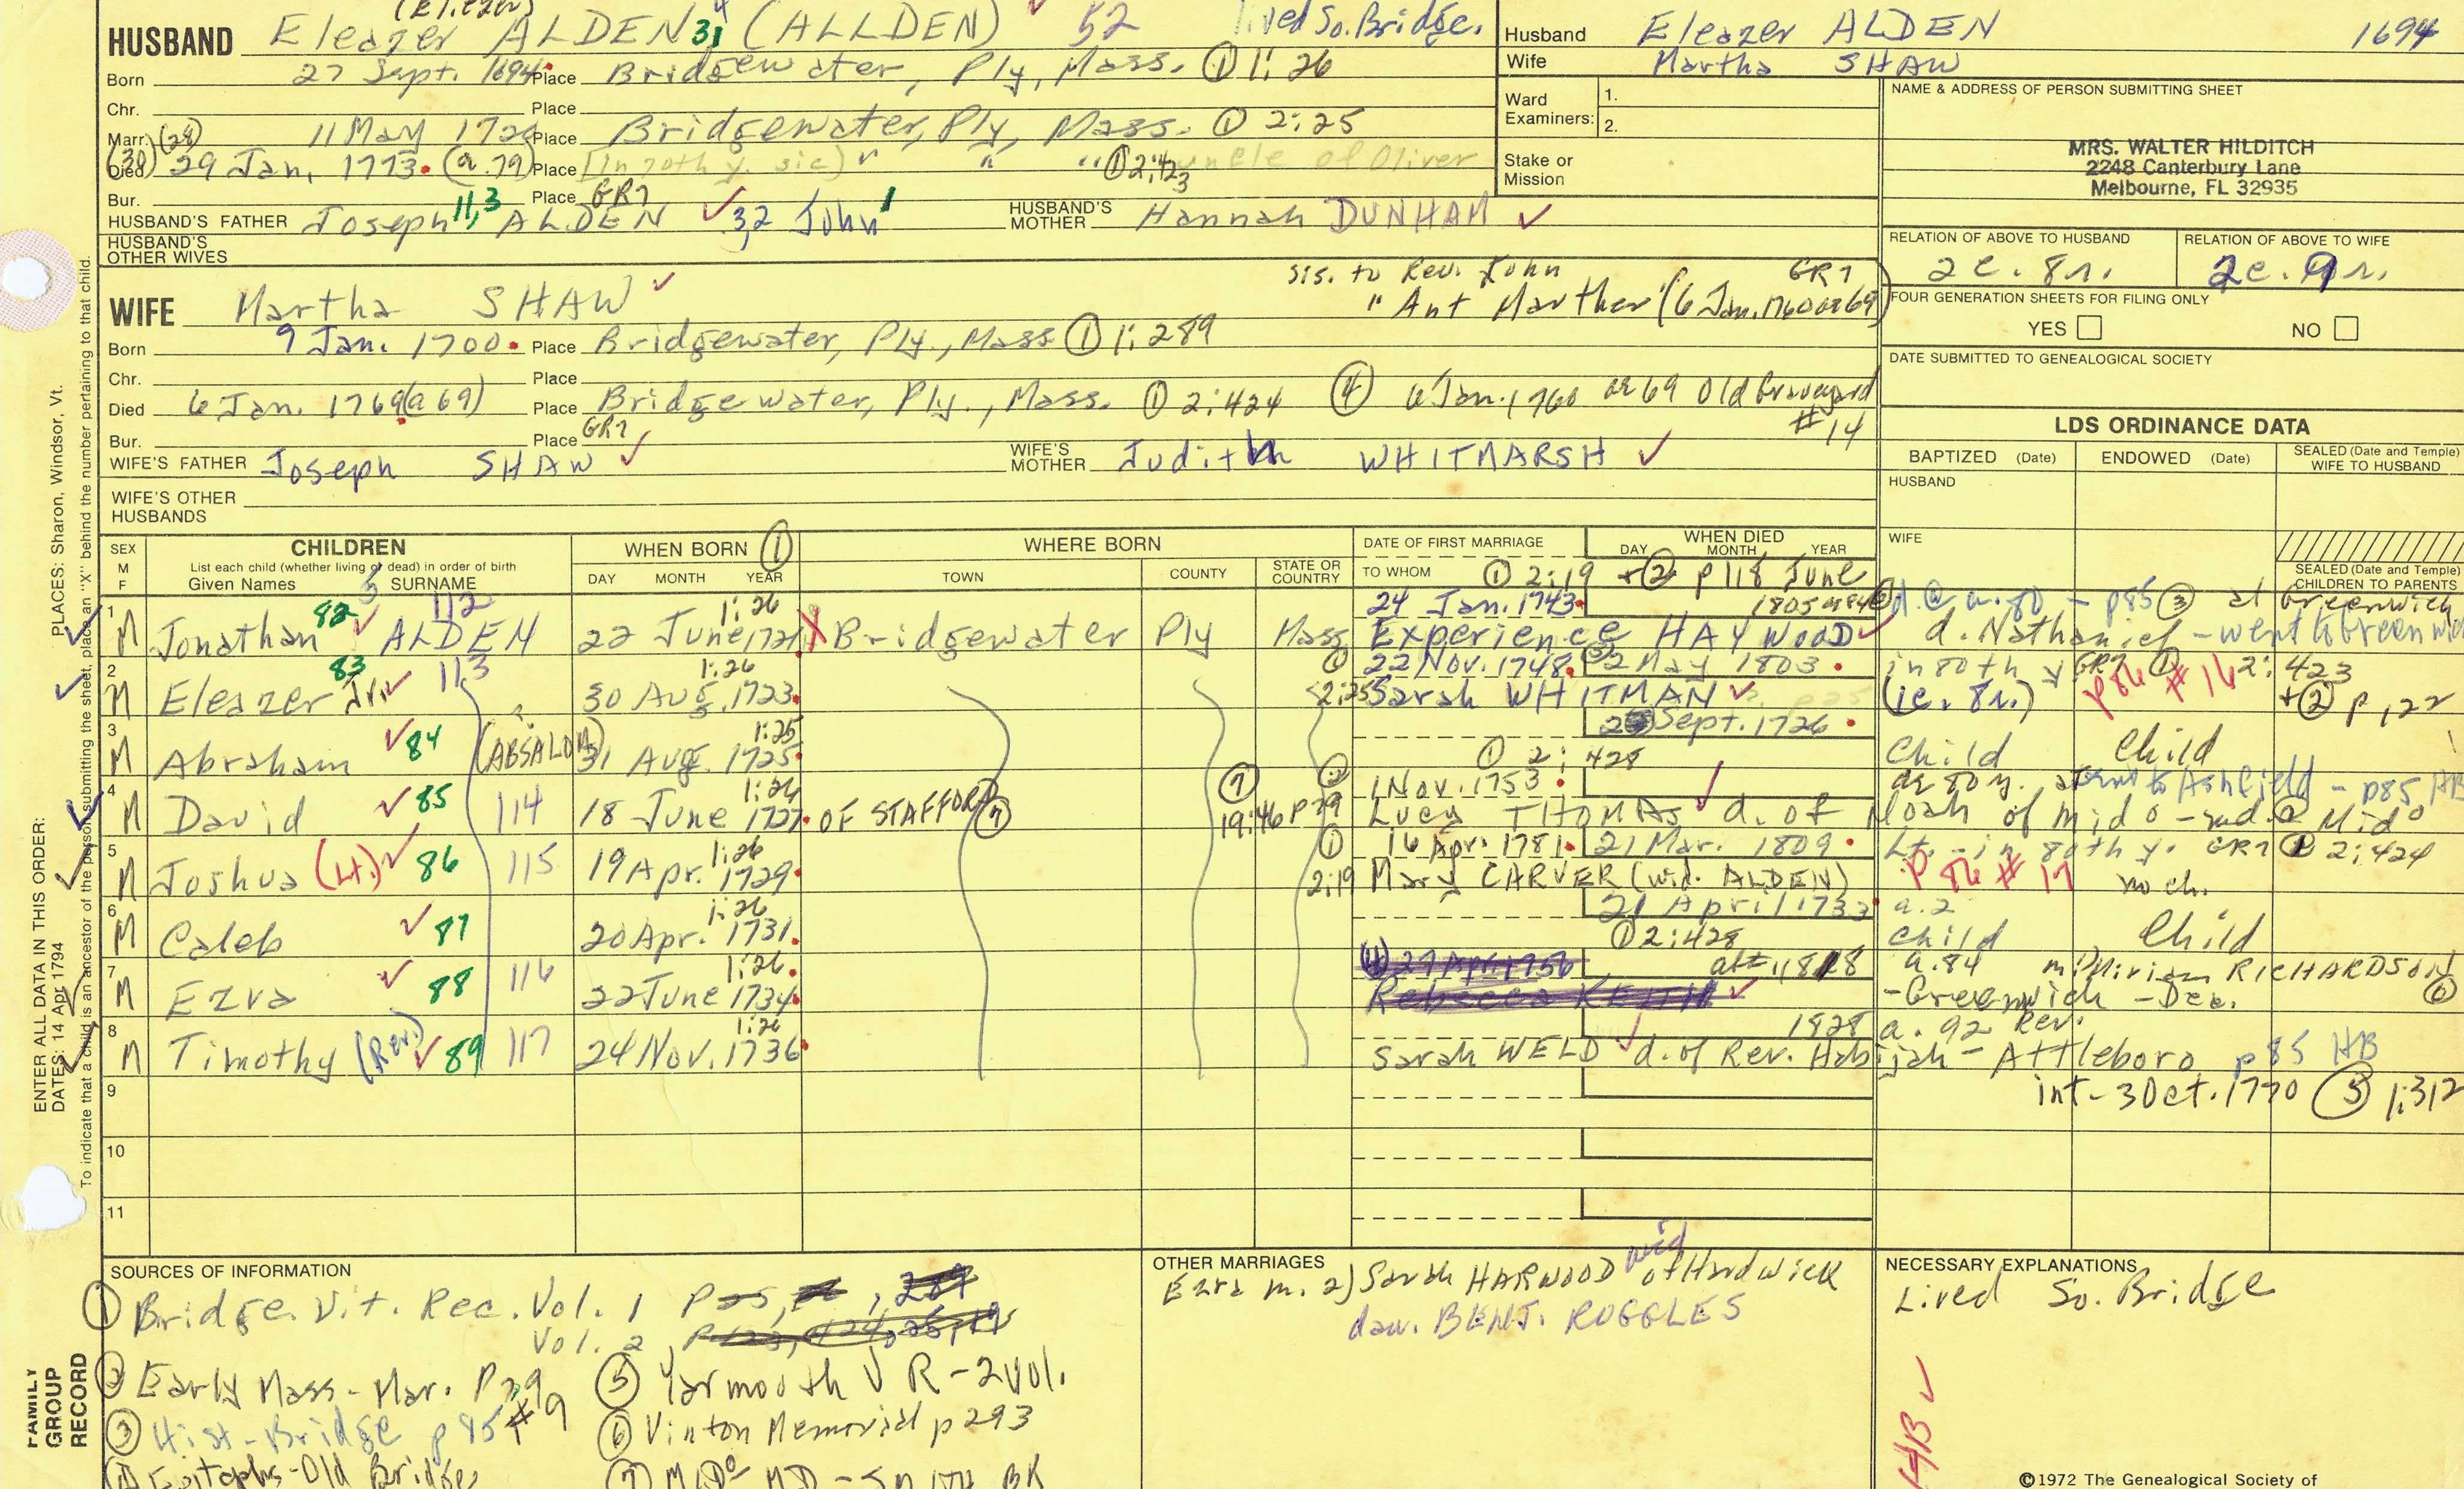 (Eliezer)
HUSBAND Eleazer ALDEN 31 (ALLDEN) 52 lived So. Bridge.
Born 27 Sept. 1694 Place Bridgewater, Ply, Mass. ① 1:26
Chr. Place
Marr. (28) 11 May 1720 Place Bridgewater, Ply, Mass. ① 2:25
Died 29 Jan. 1773. (a 79) Place [In 70th y. sic) " " " ① 2:423 uncle of Oliver
Bur. Place GR7
HUSBAND'S FATHER Joseph 11,3 ALDEN ✓ 3,2 John 1 HUSBAND'S MOTHER Hannah DUNHAM ✓
HUSBAND'S OTHER WIVES
Husband Eleazer ALDEN 1694
Wife Martha SHAW
Ward Examiners: 1.
2.
Stake or Mission
NAME & ADDRESS OF PERSON SUBMITTING SHEET
MRS. WALTER HILDITCH
2248 Canterbury Lane
Melbourne, FL 32935
RELATION OF ABOVE TO HUSBAND RELATION OF ABOVE TO WIFE
2c. 8r. 2c. 9r.
FOUR GENERATION SHEETS FOR FILING ONLY
YES NO
DATE SUBMITTED TO GENEALOGICAL SOCIETY
sis. to Rev. John GR7
WIFE Martha SHAW ✓ "Ant Marther" (6 Jan. 1760 ae 69)
Born 9 Jan. 1700. Place Bridgewater, Ply., Mass ① 1:289
Chr. Place
Died 6 Jan. 1769 (a 69) Place Bridgewater, Ply., Mass. ① 2:424 ④ 6 Jan. 1760 ae 69 Old Graveyard
#14
Bur. Place GR7
WIFE'S FATHER Joseph SHAW ✓ WIFE'S MOTHER Judith WHITMARSH ✓
WIFE'S OTHER HUSBANDS
LDS ORDINANCE DATA
BAPTIZED (Date) ENDOWED (Date) SEALED (Date and Temple) WIFE TO HUSBAND
HUSBAND
WIFE
SEALED (Date and Temple) CHILDREN TO PARENTS
SEX M F CHILDREN List each child (whether living or dead) in order of birth Given Names SURNAME
WHEN BORN ① DAY MONTH YEAR
WHERE BORN TOWN COUNTY STATE OR COUNTRY
DATE OF FIRST MARRIAGE TO WHOM
WHEN DIED DAY MONTH YEAR
① 2:19 + ② p 118 June
1:26 24 Jan. 1743. 1805 a 84 d. @ a. 80 - p85 ③ at Greenwich
1 M Jonathan 82 ✓ ALDEN 112 22 June 1721 X Bridgewater Ply Mass Experience HAYWOOD ✓ d. Nathaniel - went to Greenwich
1:26 ① 22 Nov. 1748. 2 May 1803. in 80th y GR7 ① 2:423
2 M Eleazer Jr. 83 ✓ 113 30 Aug. 1723. 2:25 Sarah WHITMAN ✓ (ie. 8r.) p 86 #16 + ② p 122
1:25 Sept. 1726.
3 M Abraham ✓ 84 (ABSALOM) 31 Aug. 1725. ① 2:428 Child Child
1:26 1 Nov. 1753. went to Ashfield - p85 HB
4 M David ✓ 85 114 18 June 1727. OF STAFFORD ⑦ ⑦ 19:46 p 29 Lucy THOMAS ✓ d. of Noah of Mido - md. @ Mido
1:26 ① 16 Apr. 1781. 21 Mar. 1809. Lt. - in 80th y. GR7 ① 2:424
5 M Joshua (Lt.) ✓ 86 115 19 Apr. 1729. 2:19 Mary CARVER (wid. ALDEN) p 86 #17 no ch.
1:26 21 April 1733 a. 2
6 M Caleb ✓ 87 20 Apr. 1731. ① 2:428 Child Child
1:26. ④ 27 Apr. 1756 1818 a. 84 m. Miriam RICHARDSON ⑥
7 M Ezra ✓ 88 116 22 June 1734. Rebecca KEITH ✓ - Greenwich - Dea.
1:26 1828 a. 92 Rev.
8 M Timothy (Rev.) ✓ 89 117 24 Nov. 1736. Sarah WELD ✓ d. of Rev. Habijah - Attleboro p 85 HB
9 int - 3 Oct. 1770 ⑤ 1:312
10
11
ENTER ALL DATA IN THIS ORDER:
DATES: 14 Apr 1794 PLACES: Sharon, Windsor, Vt.
To indicate that a child is an ancestor of the person submitting the sheet, place an "X" behind the number pertaining to that child.
FAMILY GROUP RECORD
SOURCES OF INFORMATION
① Bridge. Vit. Rec. Vol. 1 p 25, , 289
Vol. 2
② Early Mass - Mar. P 29
③ Hist - Bridge p 85 #9
④ Epitaphs - Old Bridge
⑤ Yarmouth V R - 2 Vol.
⑥ Vinton Memorial p 293
OTHER MARRIAGES
Ezra m. 2) Sarah HARWOOD wid of Hardwick
dau. BENJ. RUGGLES
NECESSARY EXPLANATIONS
Lived So. Bridge
HB ✓
©1972 The Genealogical Society of